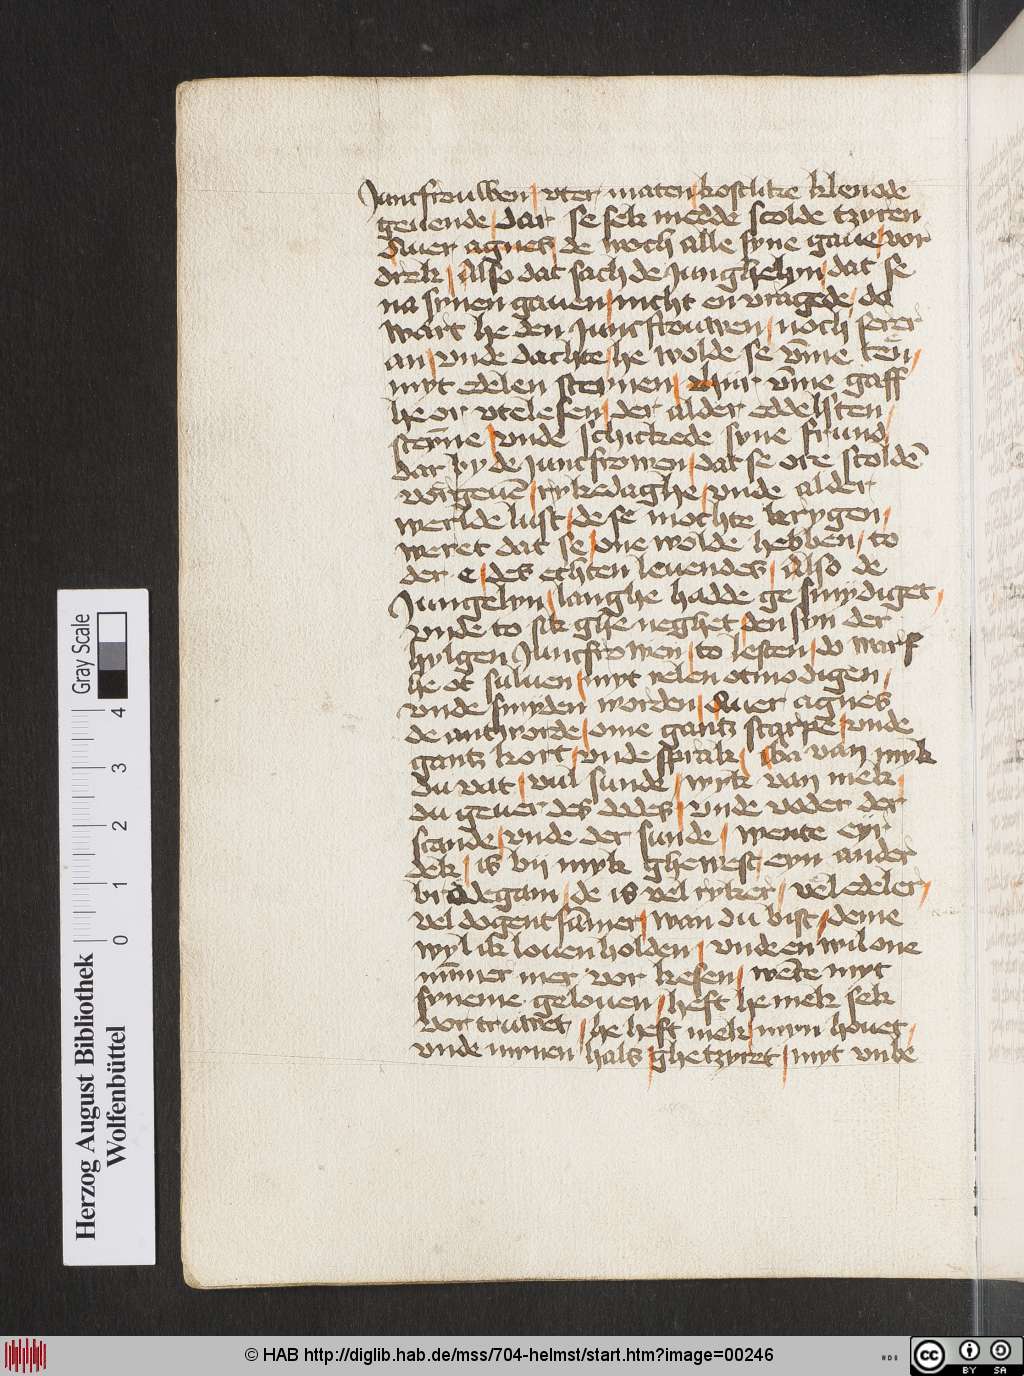 Juncfrouwen / vter maten / kostlike klenode
geuende / dar se sek medde scolde tzyren
Auer agnes / de noch alle syne gaue / vor
drek / Also dat sach de Junghelyn / dat se
na synen gauen / nicht en vragede / do
wart he den Juncfrouwen / noch serer
an / vnde dachte / he wolde se v̄me ken̄ /
myt eddelen steynen / hiir v̄me gaff
he or vtelesen / der alder eddelsten /
steyne / vnde schickede syne frund /
dar by de Juncfrowen / dat se ore scoldē
vorgeuē / rykedaghe / vnde alder
werlde lust / de se mochte krygen /
weret dat se one wolde hebben / to
der e / des echten leuendes / Also de
Jungelyn / langhe hadde ge smydiget /
vnde to sik ghe neghet / den syn der
hylgen Juncfrowen / to lesten / do warf
he ot suluen / myt velen otmodigen /
vnde smyden worden / Auer agnes
de antworde / ome gantz scarpe / vnde
gantz kort / vnde sprak / Ga van myk
du vat / vul sunde / wyk van mek /
du geuer des dodes / vnde voder der
scande / vnde der sunde / wente eyr
dek / is bij myk ghewest / eyn ander
brodegam / de is vel ryker / vel edeler /
vel dogentsamer / wan du bist / deme
wyl ik louen holden / vnde en wil one
nūmer mer vor kesen / wēte myt
syneme gelouen / heft he mek sek
vor truwet / he heft mek / myn houet /
vnde mynen / hals / ghetzyret / myt vnbe
Herzog August Bibliothek
Wolfenbüttel
Gray Scale
0 1 2 3 4
© HAB http://diglib.hab.de/mss/704-helmst/start.htm?image=00246
HAB
cc BY SA